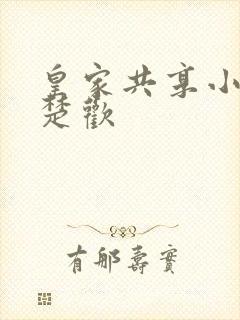 皇家共享小
楚歡
有邮壽實